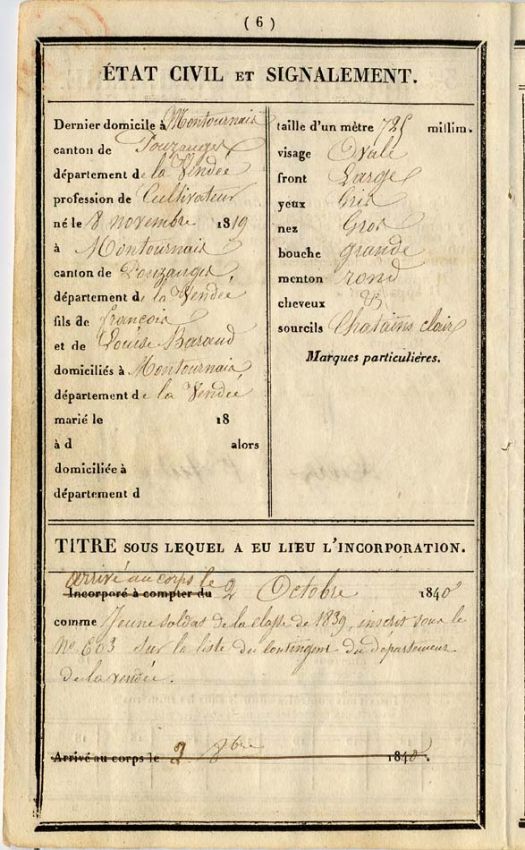 ( 6 )
ÉTAT CIVIL ET SIGNALEMENT.
Dernier domicile à Montournais
canton de Pouzauges
département de la Vendée
profession de Cultivateur
né le 8 novembre 1819
à Montournais
canton de Pouzauges
département de la Vendée
fils de françois
et de Louise Baraud
domiciliés à Montournais
département de la Vendée
marié le 18
à d alors
domiciliée à
département d
taille d'un mètre 725 millim.
visage Ovale
front Large
yeux Gris
nez Gros
bouche grande
menton rond
cheveux et
sourcils Chatains clair
Marques particulières.
TITRE SOUS LEQUEL A EU LIEU L'INCORPORATION.
arrivé au corps le
Incorporé à compter du 2 Octobre 1840
comme Jeune soldat de la classe de 1839, inscrit sous le
N° 603 sur la liste du contingent du département
de la vendée.
Arrivé au corps le 2 8bre 1840.